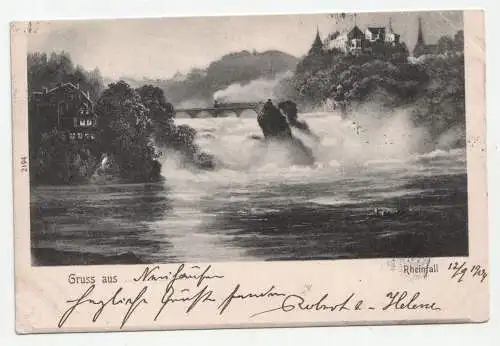 2194
Rheinfall
Gruss aus Neuhausen 12/9 1904
herzliche Grüsse senden Robert & Helene